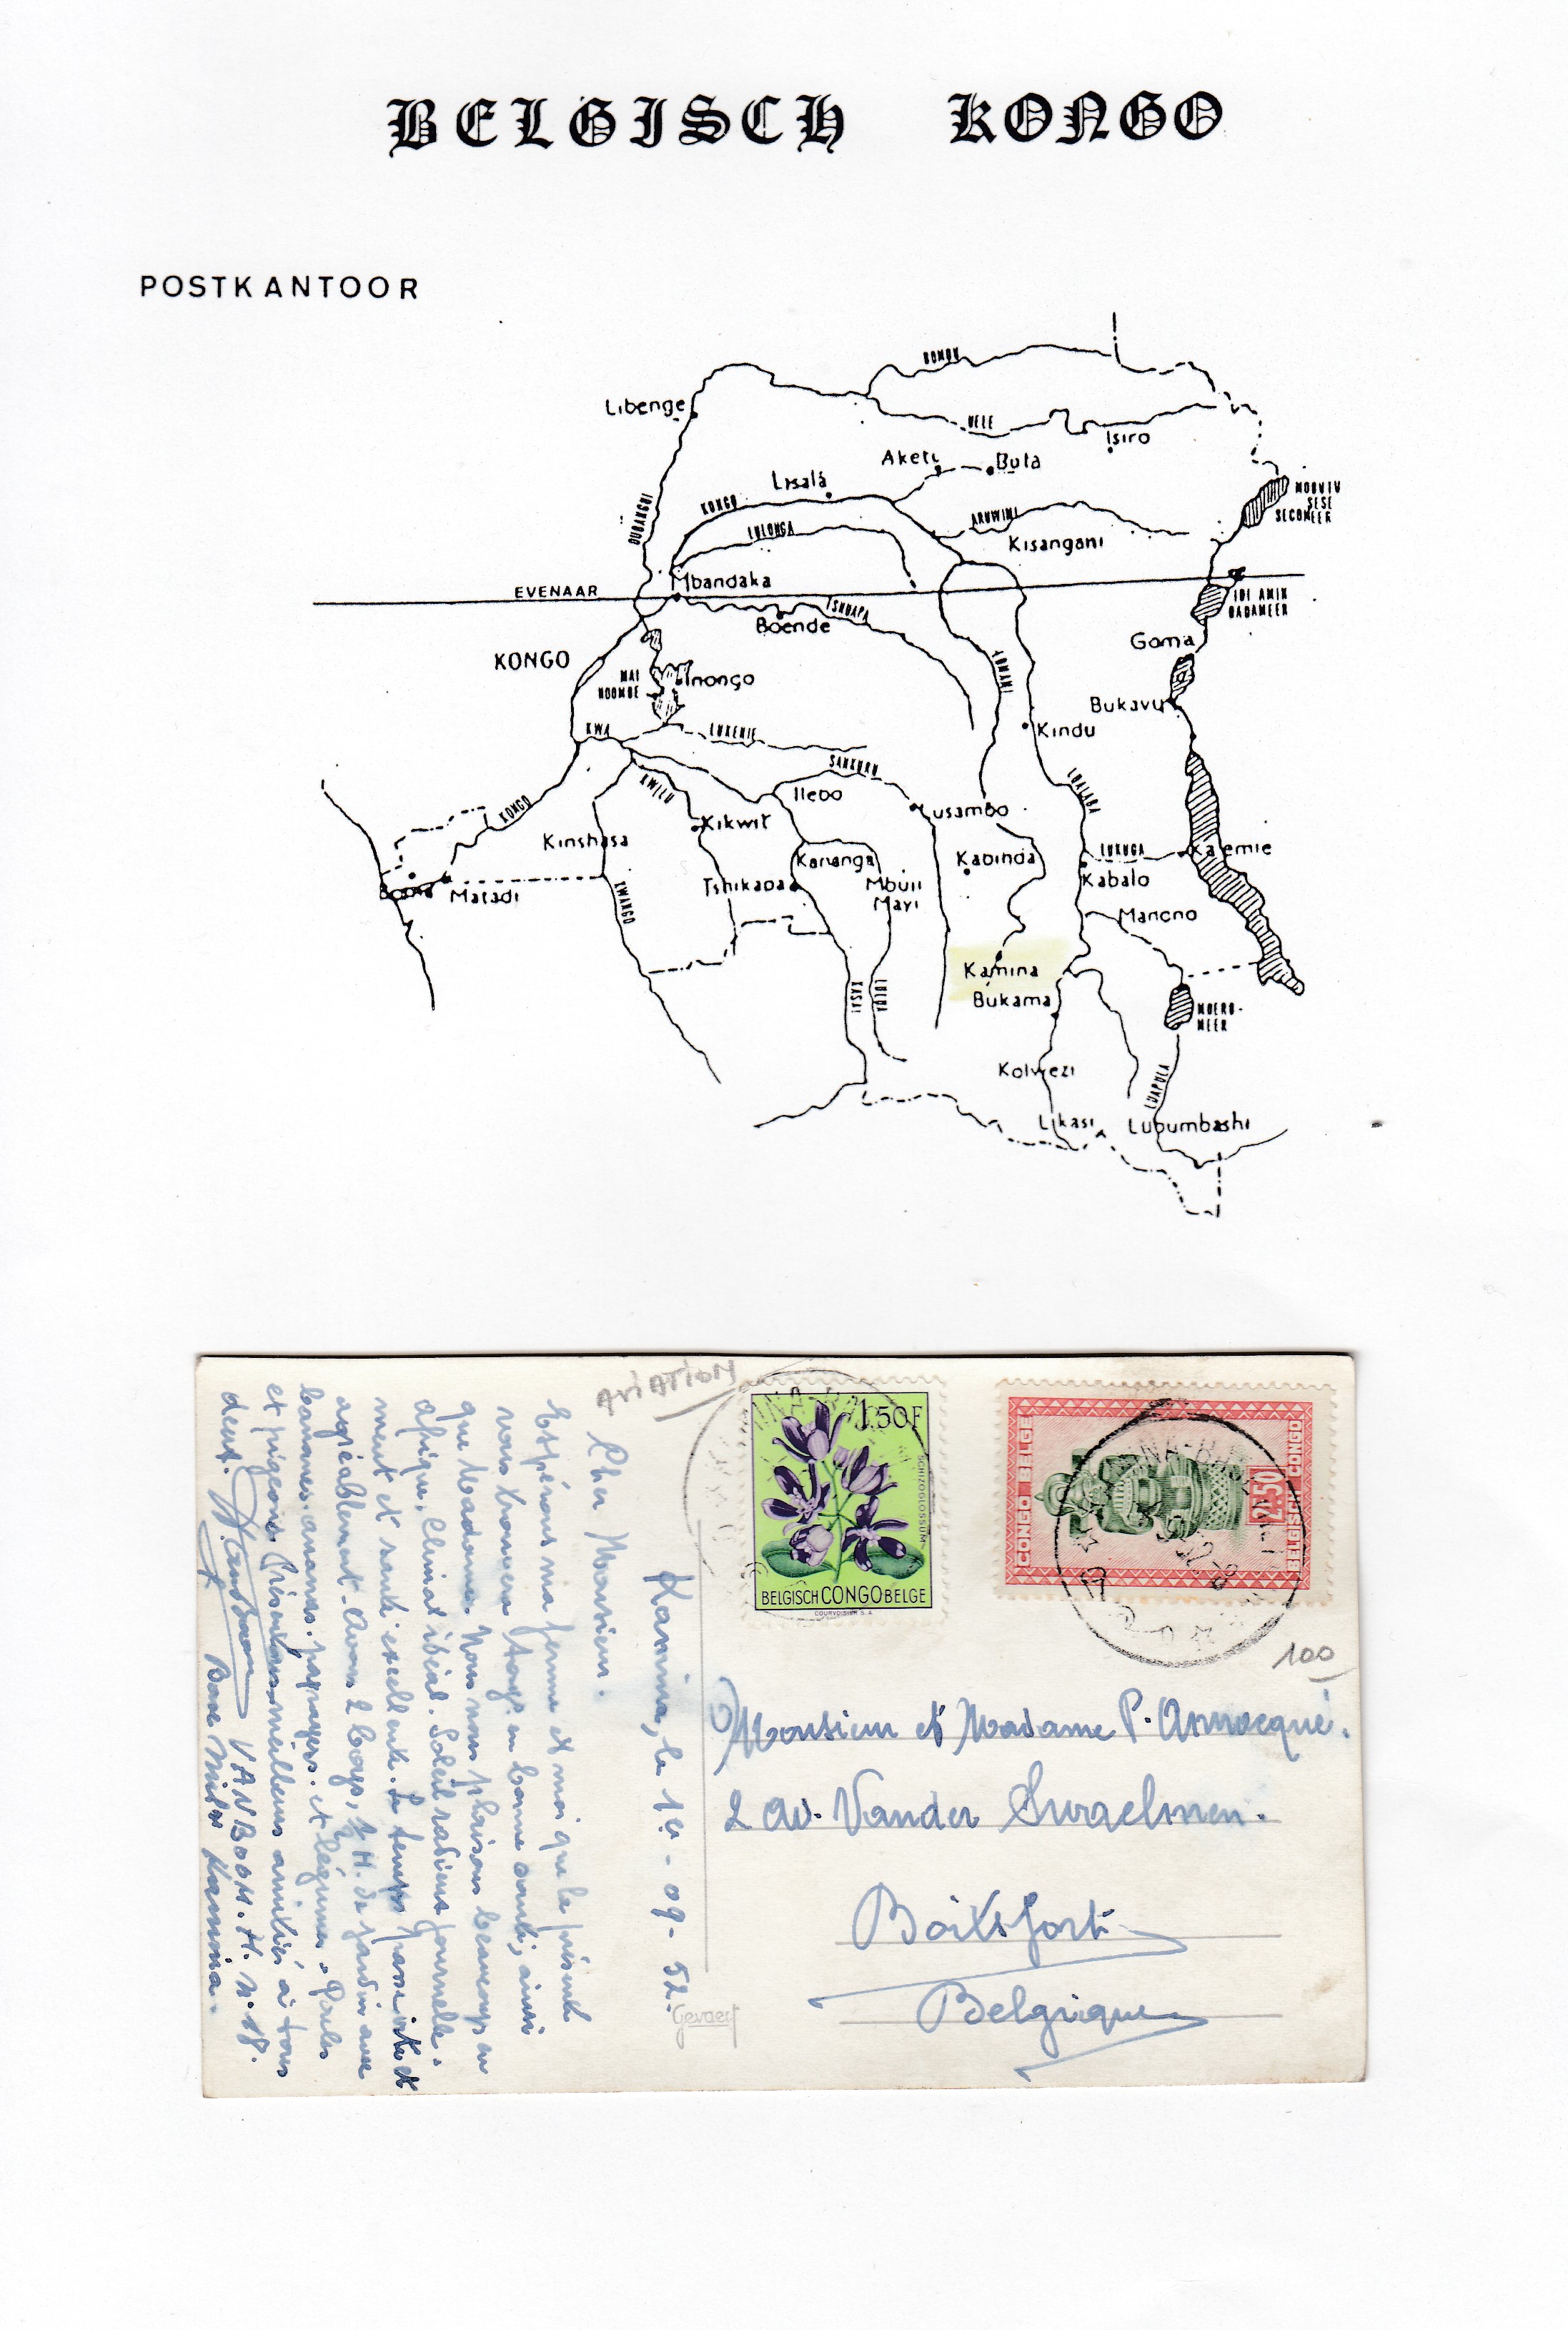 BELGISCH KONGO
POSTKANTOOR
BOMU
Libenge
UELE
Isiro
Aketi
Buta
Lisala
MOBUTU
SESE
SECOMEER
OUBANGUI
KONGO
LULONGA
ARUWIMI
Kisangani
EVENAAR
Mbandaka
TSHUAPA
Boende
IDI AMIN
DADAMEER
Goma
KONGO
MAI
NDOMBE
Inongo
LOMAMI
Bukavu
Kindu
KWA
LUKENIE
SANKURU
KWILU
Ilebo
LUALABA
KONGO
Kikwit
Lusambo
Kinshasa
Kananga
Kabinda
LUKUGA
Kalemie
Boma
Matadi
KWANGO
Tshikapa
Mbuji
Mayi
Kabalo
Manono
Kamina
Bukama
KASAI
LULUA
MOERO-
MEER
Kolwezi
LUAPULA
Likasi
Lubumbashi
AVIATION
1.50F
SCHIZOGLOSSUM
BELGISCH CONGO BELGE
COURVOISIER S.A.
CONGO BELGE
2.50
BELGISCH CONGO
100
Kamina, le 10-09-52.
Cher Monsieur.
Espérons ma femme et moi que la présente
vous trouvera tous en bonne santé, ainsi
que Madame. Nous nous plaisons beaucoup en
Afrique. Climat idéal. Soleil radieux journelle-
ment et santé excellente. Le temps passe vite et
agréablement. Avons 2 boys, 1/2 H. de jardin avec
bananes, ananas, papayers. et légumes. Poules
et pigeons. Présentons meilleurs amitiés à tous
deux.
VANBOOM. H. N. 18.
Base Milre Kamina.
Monsieur et Madame P. Annocqué.
2 av. Vander Swaelmen.
Boitsfort
Belgique
Gevaert